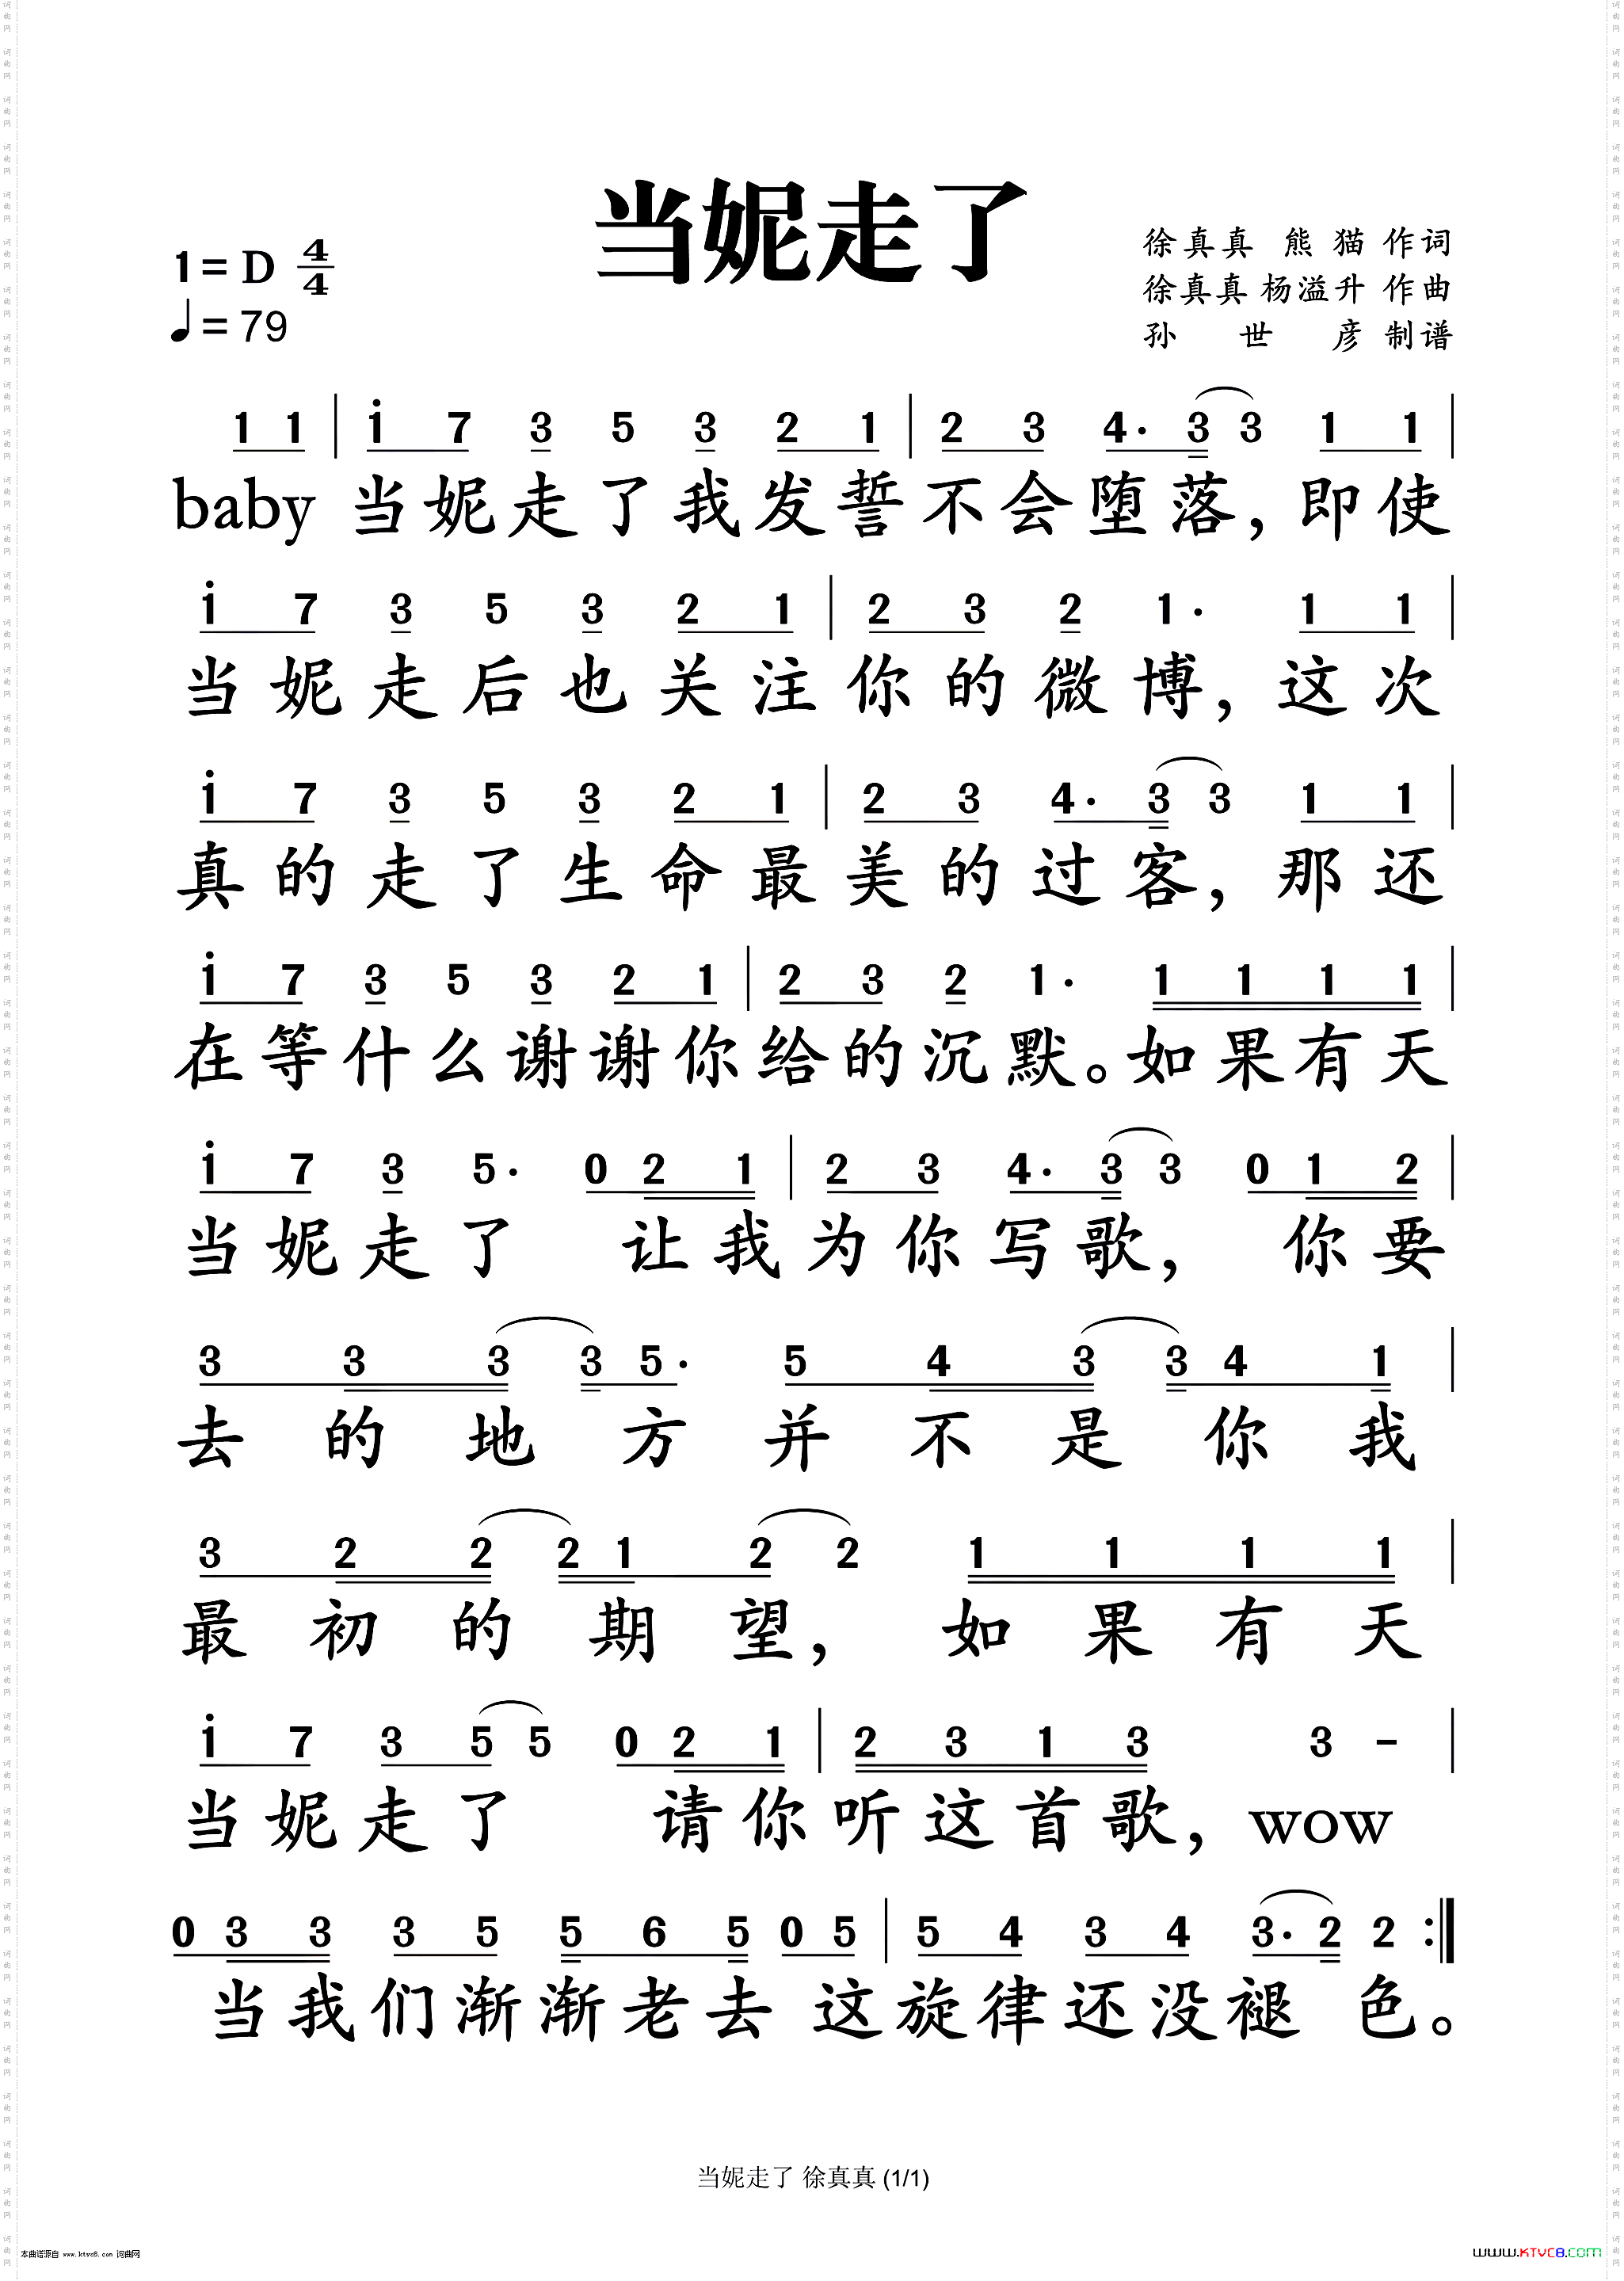 当妮走了
1=D 4/4
♩=79
徐真真 熊猫 作词
徐真真 杨溢升 作曲
孙世彦 制谱
1 1 | i 7 3 5 3 2 1 | 2 3 4· 3 3 1 1 |
baby 当妮走了我发誓不会堕落，即使
i 7 3 5 3 2 1 | 2 3 2 1· 1 1 |
当妮走后也关注你的微博，这次
i 7 3 5 3 2 1 | 2 3 4· 3 3 1 1 |
真的走了生命最美的过客，那还
i 7 3 5 3 2 1 | 2 3 2 1· 1 1 1 1 |
在等什么谢谢你给的沉默。如果有天
i 7 3 5· 0 2 1 | 2 3 4· 3 3 0 1 2 |
当妮走了 让我为你写歌， 你要
3 3 3 3 5· 5 4 3 3 4 1 |
去的地方并不是你我
3 2 2 2 1 2 2 1 1 1 1 |
最初的期望，如果有天
i 7 3 5 5 0 2 1 | 2 3 1 3 3 - |
当妮走了 请你听这首歌，wow
0 3 3 3 5 5 6 5 0 5 | 5 4 3 4 3· 2 2 :‖
当我们渐渐老去 这旋律还没褪色。
当妮走了 徐真真 (1/1)
本曲谱源自 www.ktvc8.com 词曲网
www.KTVC8.com